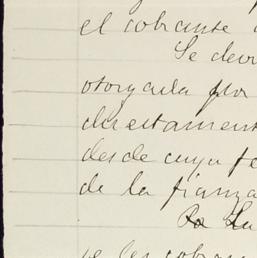 el cobrante
Se dev
otorgada por
directament
desde cuya fe
de la fianza
se les cobra